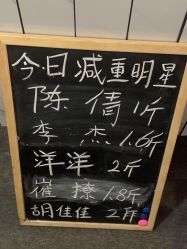 今日减重明星
陈倩1斤
李杰1.6斤
洋洋2斤
崔撩1.8斤
胡佳佳2斤